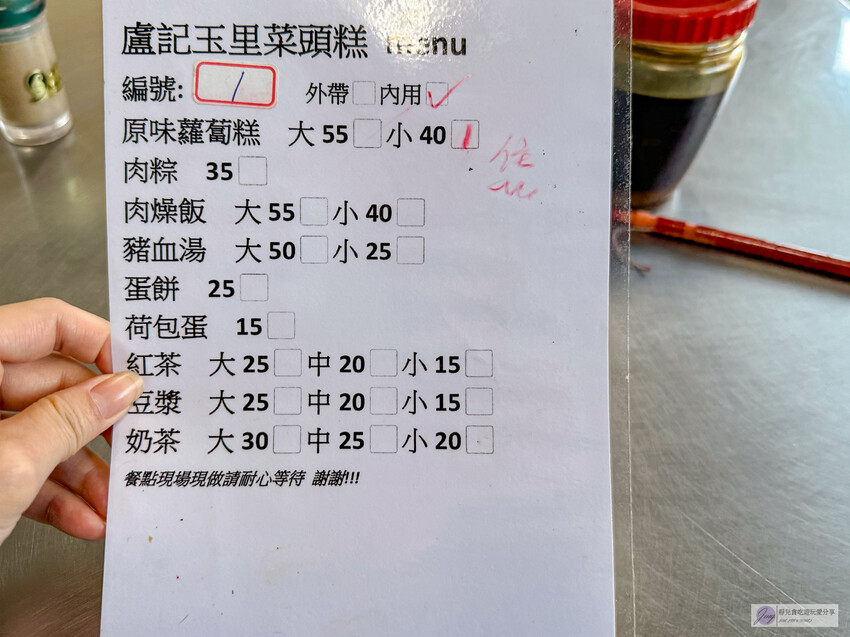 盧記玉里菜頭糕 menu
編號: 1 外帶 內用 ✓
原味蘿蔔糕 大 55 小 40 1
肉粽 35
肉燥飯 大 55 小 40
豬血湯 大 50 小 25
蛋餅 25
荷包蛋 15
紅茶 大 25 中 20 小 15
豆漿 大 25 中 20 小 15
奶茶 大 30 中 25 小 20
餐點現場現做請耐心等待 謝謝!!!